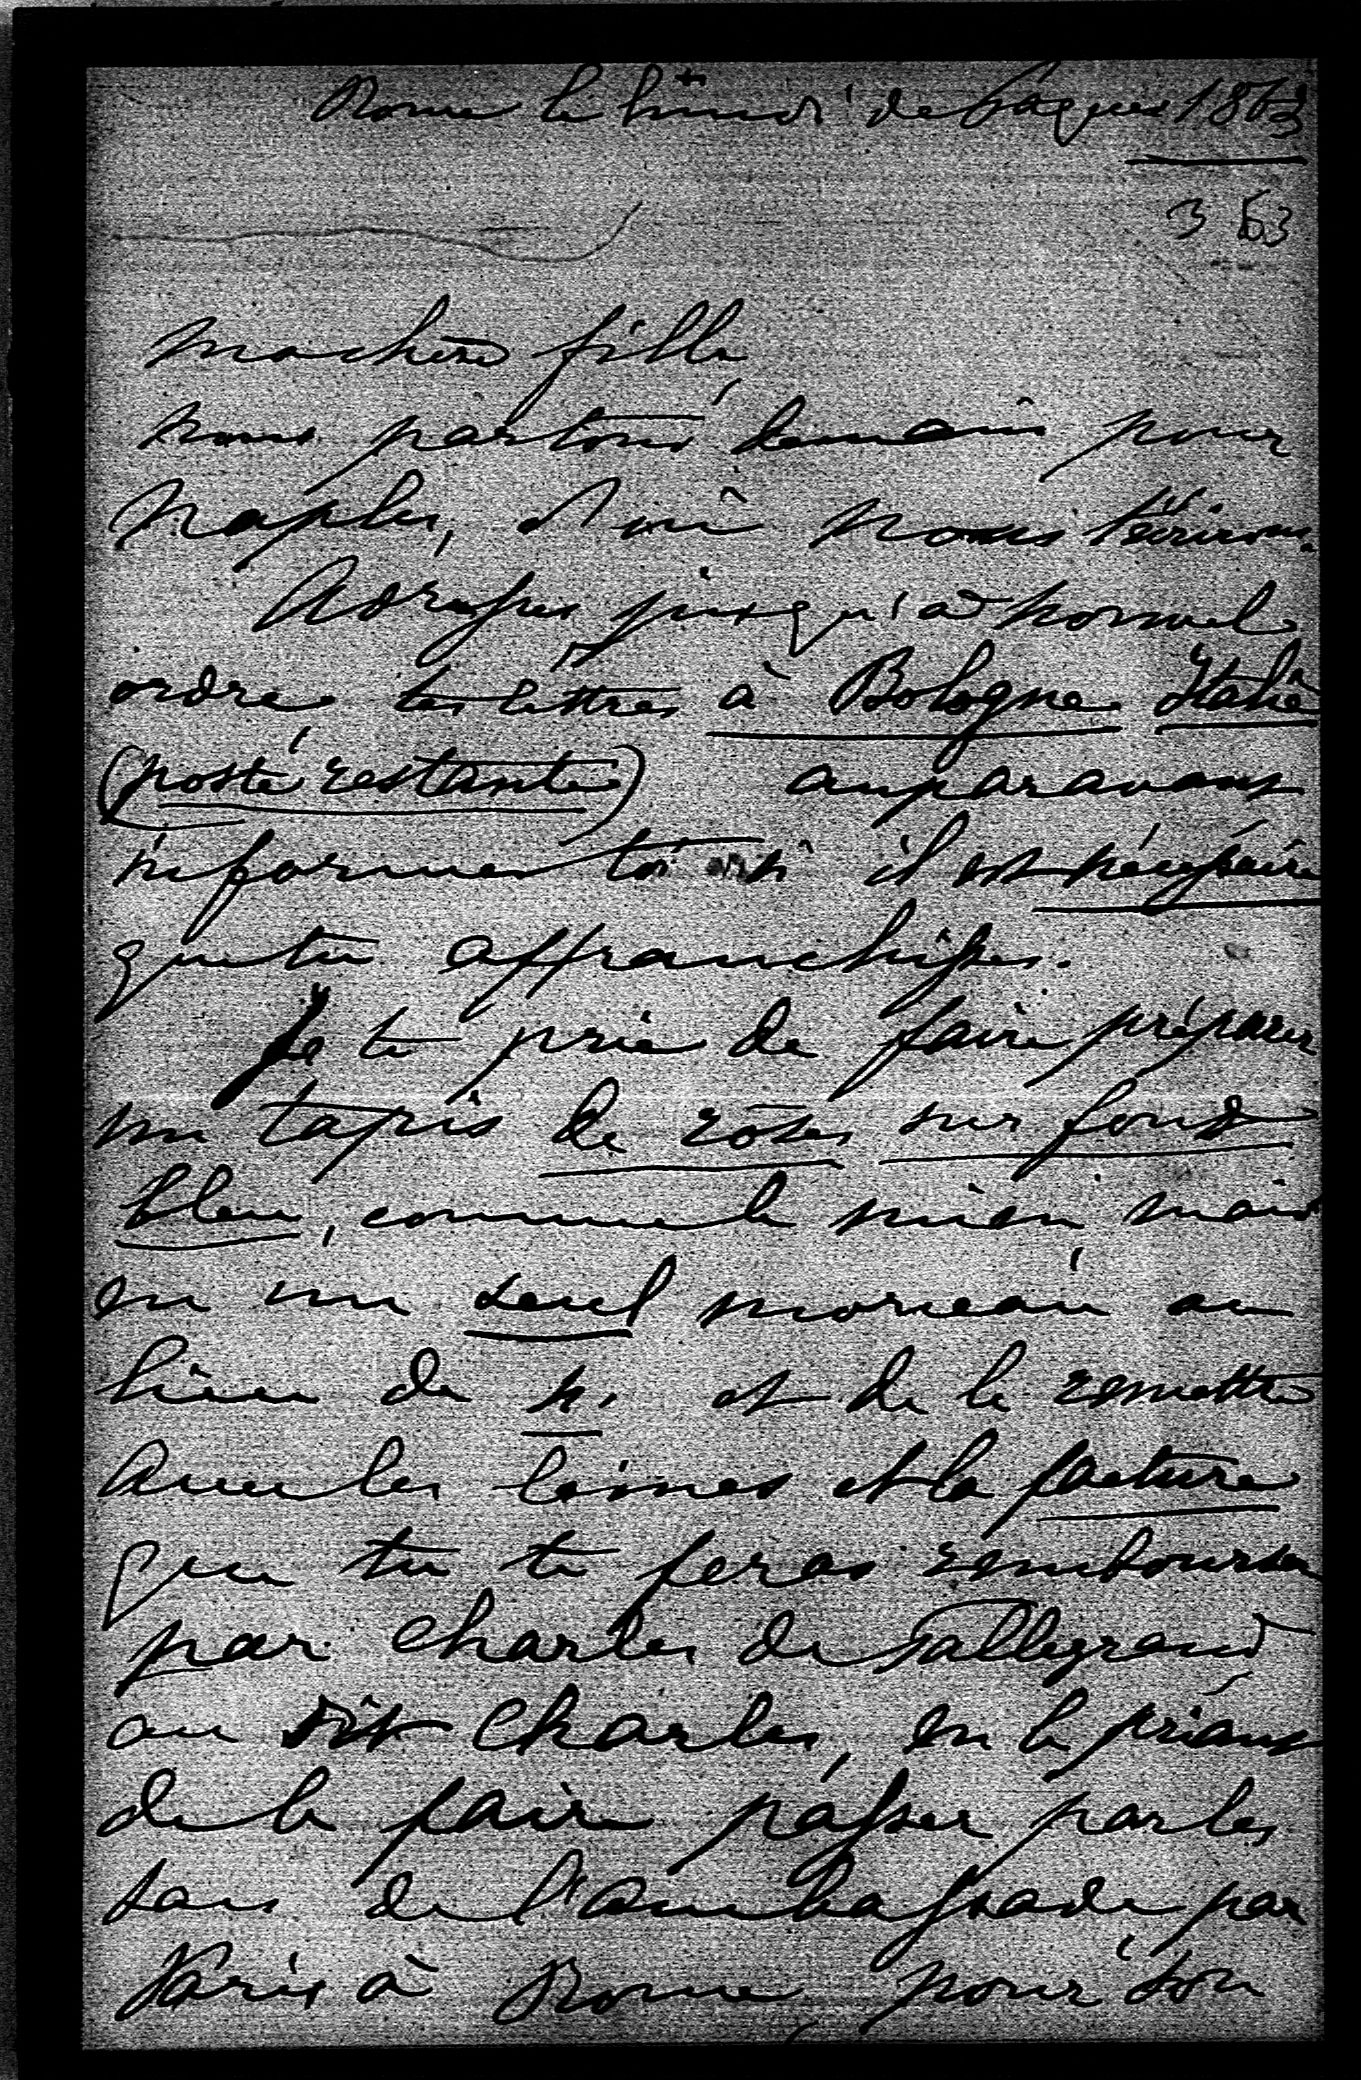 Rome le lundi de Paques 1863
3 63
Ma chère fille
nous partons demain pour
Naples, d'où nous t'écrirons.
Adresses jusqu'à nouvel
ordre tes lettres à Bologne Italie
(poste restante) auparavant
informes toi si il est nécessaire
que tu affranchisses.
Je te prie de faire préparer
un tapis de roses sur fond
bleu, comme le mien mais
en un seul morceau au
lieu de 4. et de le remettre
avec les laines et la facture
que tu te feras rembourser
par Charles de Talleyrand
au dit Charles, en le priant
de le faire passer par les
sacs de l'ambassade par
Paris à Rome, pour son